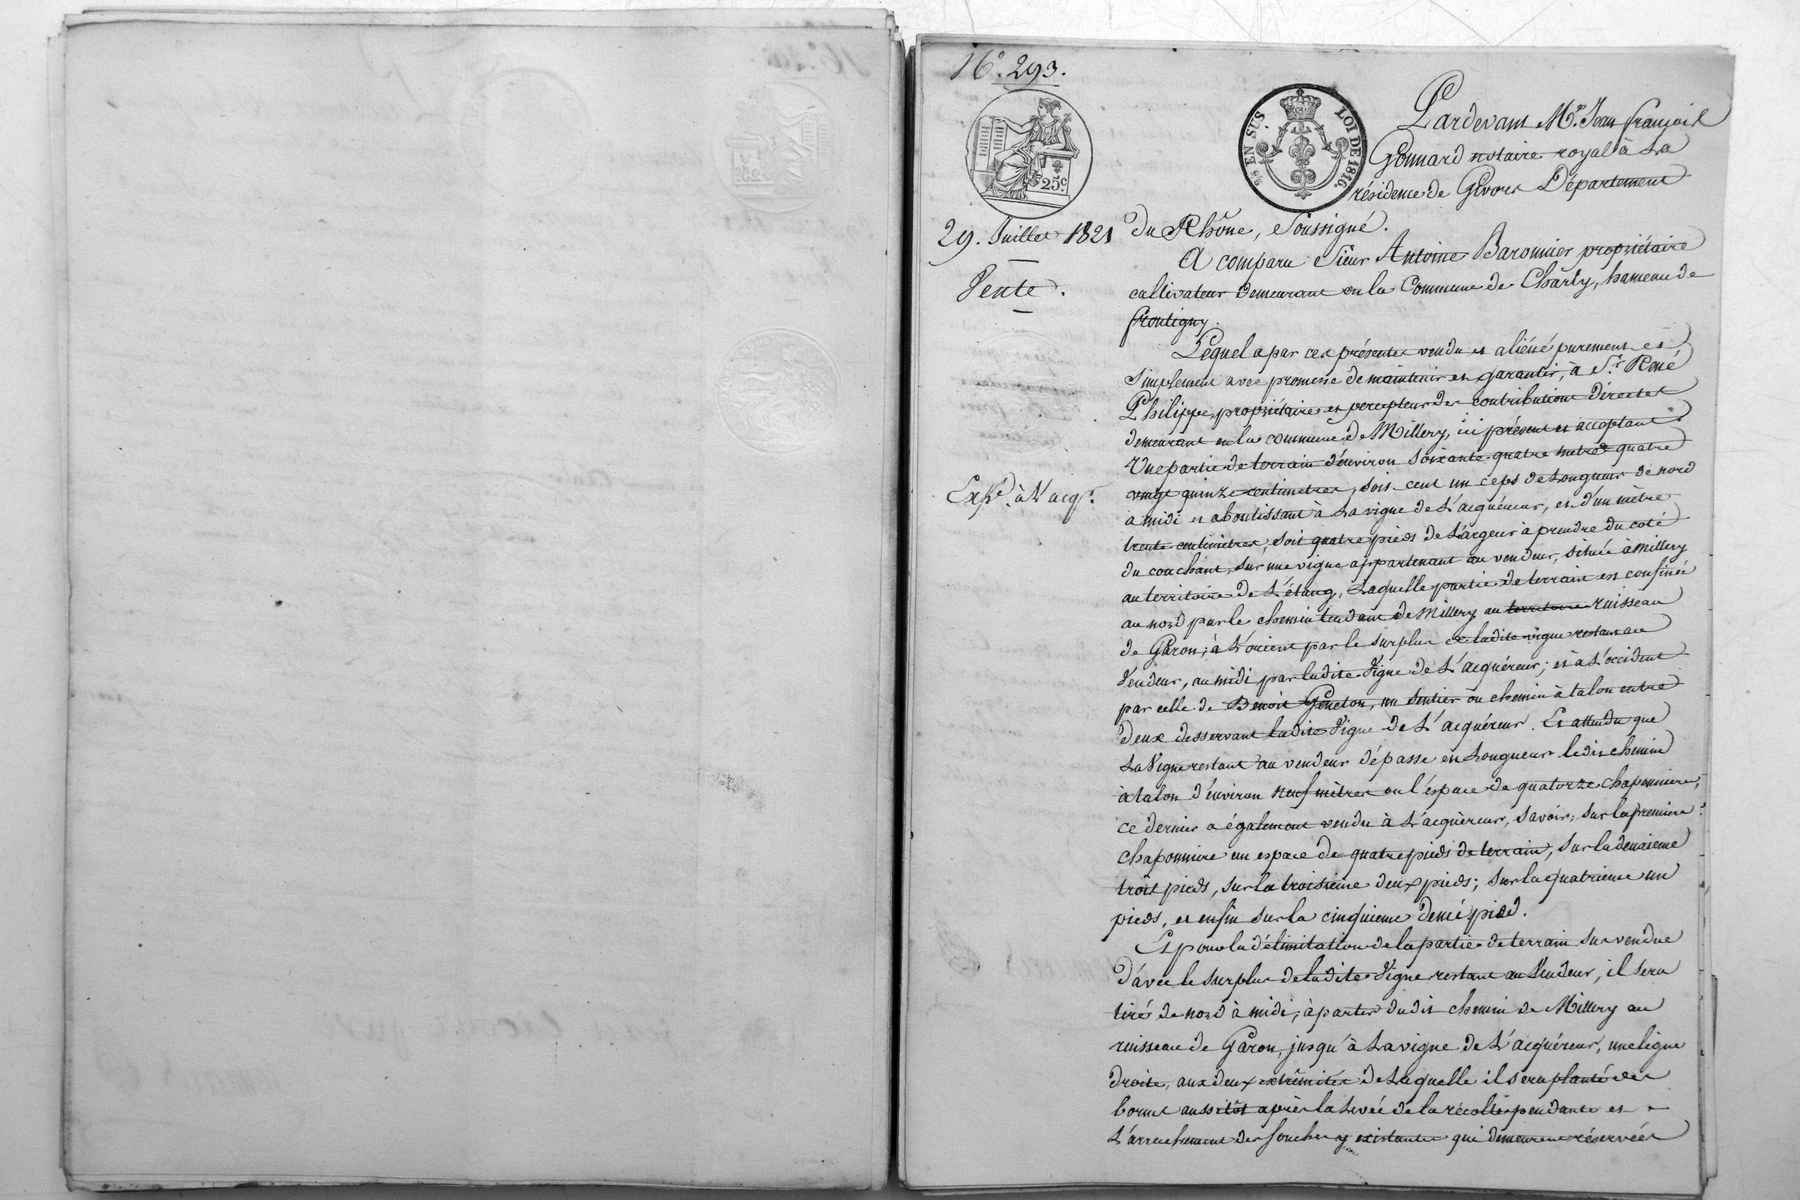 16.e 293.
EN SUS. LOI DE 1816.
25c
29. Juillet 1821
Vente.
Expé. à l'acqr.
Pardevant Me. Jean françois
Gonnard notaire royal à la
résidence de Givors Département
du Rhône, Soussigné.
A comparu Sieur Antoine Baronnier propriétaire
cultivateur demeurant en la Commune de Charly, hameau de
frontigny.
Lequel a par ces présentes vendu et aliéné purement et
simplement avec promesse de maintenir et garantir, à Sr. René
Philippe, propriétaire et percepteur des contributions Directes
demeurant en la commune de Millery, ici présent et acceptant:
Une partie de terrain d'environ soixante quatre metres quatre
vingt quinze centimetres, soit cent un ceps de longueur de nord
a midi et aboutissant à la vigne de l'acquéreur, et d'un mètre
trente centimètres, soit quatre pieds de largeur à prendre du coté
du couchant, sur une vigne appartenant au vendeur, située à Millery
au territoire de L'étang, Laquelle partie de terrain est confinée
au nord par le chemin tendant de Millery au territoire ruisseau
de Garon; à L'orient par le surplus de ladite vigne restant au
Vendeur, au midi par ladite Vigne de L'acquéreur; et à L'occident
par celle de Benoit Geneton, un sentier ou chemin à talon entre
Deux desservant ladite Vigne de L'acquéreur. Et attendu que
La Vigne restant au vendeur dépasse en Longueur ledit chemin
à talon d'environ neuf mètres ou l'espace de quatorze chaponnière;
ce dernier a également vendu à L'acquéreur, savoir: sur la première
chaponnière un espace de quatre pieds de terrain, sur la deuxieme
trois pieds, sur la troisieme deux pieds; sur la quatrieme un
pieds, et enfin sur la cinquieme demi pied.
Et pour la délimitation de la partie de terrain sus vendue
D'avec le surplus de ladite Vigne restant au Vendeur, il sera
tiré de nord à midi, à partir dudit chemin de Millery au
ruisseau de Garon, jusqu'à La vigne de L'acquéreur, une ligne
droite, aux deux extrêmités de Laquelle il sera planté des
bornes aussitôt après la Levée de la récolte pendante et
L'arrachement des souches y existantes qui demeurent réservées